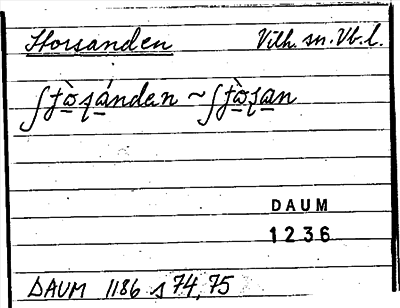 Storsanden Vilh. sn. Vb. l.
ʃtò̱ʂá̱nden ~ ʃtò̱ʂa̱n
DAUM
1236
DAUM 1186 s 74, 75